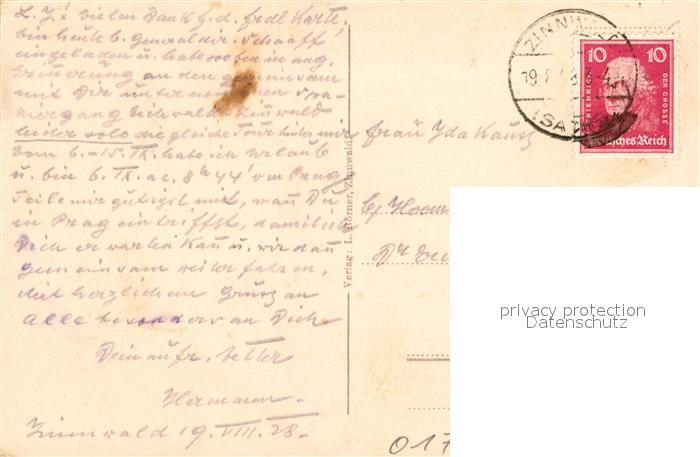 L. J.! vielen Dank f. d. frdl. Karte,
bin heute b. Generaldir. Schaaff
eingeladen u. habe soeben in ang.
Erinnerung an den gemeinsam
mit Dir unternommenen Spa-
ziergang Eichwald - Zinnwald
leider solo die gleiche Tour hinter mir
vom 6. - 15. IX. habe ich Urlaub
u. bin 6. IX. a. c. 8h 44' von Prag
Teile mir gütigst mit, wan̄ Du
in Prag eintriffst, damit ich
Dich erwarten kan̄ u. wir dan̄
gemeinsam weiter fahren.
Mit herzlichem Gruß an
alle besonders an Dich
Dein aufr. Vetter
Hermann.
Zinnwald 19. VIII. 28.
Verlag: L. Börner, Zinnwald
ZINNW
19.8.28
(SA
10 10
FRIEDRICH DER GROSSE
Deutsches Reich
Frau Ida
b/
Dr
017
privacy protection
Datenschutz